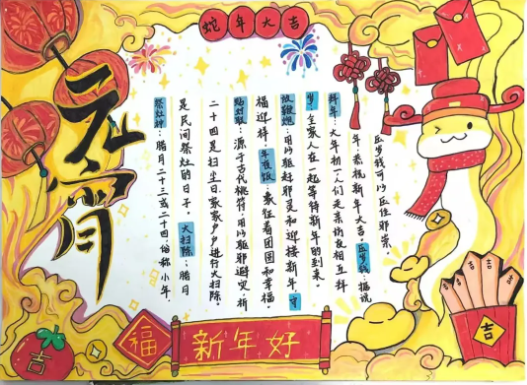 蛇年大吉
元宵
祭灶神:腊月二十三或二十四,俗称小年,
是民间祭灶的日子。大扫除:腊月
二十四是扫尘日,家家户户进行大扫除。
贴对联:源于古代桃符,用以驱邪避灾,祈
福迎祥。年夜饭:象征着团圆和幸福。
放鞭炮:用以驱赶邪灵和迎接新年。守
岁:全家人在一起等待新年的到来。
拜年:大年初一人们走亲访友相互拜
年,恭祝新年大吉。压岁钱:据说
压岁钱可以压住邪祟。
吉
福
新年好
吉